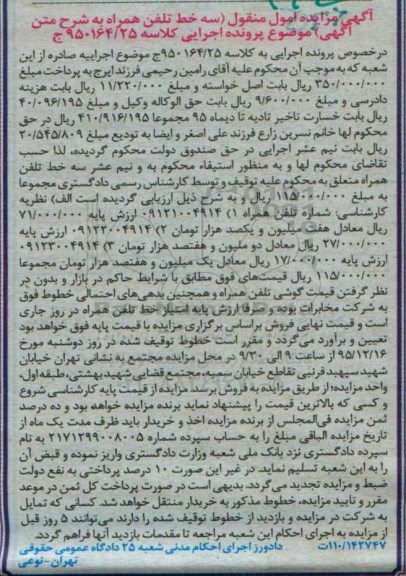 آگهی مزایده اموال منقول (سه خط تلفن همراه به شرح متن
آگهی) موضوع پرونده اجرایی کلاسه ۹۵۰۱۶۴/۲۵ ج
درخصوص پرونده اجرایی به کلاسه ۹۵۰۱۶۴/۲۵ج موضوع اجراییه صادره از این
شعبه که به موجب آن محکوم علیه آقای رامین رحیمی فرزند ایرج به پرداخت مبلغ
۳۵۰/۰۰۰/۰۰۰ ریال بابت اصل خواسته و مبلغ ۱۱/۲۲۰/۰۰۰ ریال بابت هزینه
دادرسی و مبلغ ۹/۶۰۰/۰۰۰ ریال بابت حق الوکاله وکیل و مبلغ ۴۰/۰۹۶/۱۹۵
ریال بابت خسارت تاخیر تادیه تا دیماه ۹۵ مجموعا ۴۱۰/۹۱۶/۱۹۵ ریال در حق
محکوم لها خانم نسرین زارع فرزند علی اصغر و ایضا به تودیع مبلغ ۲۰/۵۴۵/۸۰۹
ریال بابت نیم عشر اجرایی در حق صندوق دولت محکوم گردیده، لذا حسب
تقاضای محکوم لها و به منظور استیفاء محکوم به و نیم عشر سه خط تلفن
همراه متعلق به محکوم علیه توقیف و توسط کارشناس رسمی دادگستری مجموعا
به مبلغ ۱۱۵/۰۰۰/۰۰۰ ریال و به شرح ذیل ارزیابی گردیده است الف) نظریه
کارشناسی: شماره تلفن همراه ۱) ۰۹۱۲۱۰۰۴۹۱۴ ارزش پایه ۷۱/۰۰۰/۰۰۰
ریال معادل هفت میلیون و یکصد هزار تومان ۲) ۰۹۱۲۲۰۰۴۹۱۴ ارزش پایه
۲۷/۰۰۰/۰۰۰ ریال معادل دو ملیون و هفتصد هزار تومان ۳) ۰۹۱۲۳۰۰۴۹۱۴
ارزش پایه ۱۷/۰۰۰/۰۰۰ ریال معادل یک میلیون و هفتصد هزار تومان مجموعا
۱۱۵/۰۰۰/۰۰۰ ریال قیمت‌های فوق مطابق با شرایط حاکم در بازار و بدون در
نظر گرفتن قیمت گوشی تلفن همراه و همچنین بدهی‌های احتمالی خطوط فوق
به شرکت مخابرات بوده و صرفا ارزش پایه امتیاز خط تلفن همراه در روز جاری
است و قیمت نهایی فروش براساس برگزاری مزایده با قیمت پایه فوق خواهد بود
تعیین و برآورد می‌گردد و مقرر است خطوط توقیف شده در روز دوشنبه مورخ
۹۵/۱۲/۱۶ از ساعت ۹ الی ۹/۳۰ در محل مزایده مجتمع به نشانی تهران خیابان
شهید سپهبد قرنی تقاطع خیابان سمیه، مجتمع قضایی شهید بهشتی، طبقه اول،
واحد مزایده؛ از طریق مزایده به فروش برسد. مزایده از قیمت پایه کارشناسی شروع
و کسی که بالاترین قیمت را پیشنهاد نماید برنده مزایده خواهد بود و ده درصد
ثمن مزایده فی‌المجلس از برنده مزایده اخذ و خریدار باید ظرف مدت یک ماه از
تاریخ مزایده الباقی مبلغ را به حساب سپرده شماره ۲۱۷۱۲۹۹۰۰۸۰۰۵ به نام
سپرده دادگستری نزد بانک ملی شعبه وزارت دادگستری واریز نموده و قبض آن
را به این شعبه تسلیم نماید. در غیر این صورت ۱۰ درصد پرداختی به نفع دولت
ضبط و مزایده تجدید می‌گردد. بدیهی است در صورت پرداخت کل ثمن در موعد
مقرر و تایید مزایده، خطوط مذکور به خریدار منتقل خواهد شد. کسانی که تمایل
به شرکت در مزایده و بازدید از خطوط توقیف شده را دارند می‌توانند ۵ روز قبل
از مزایده به اجرای احکام این شعبه مراجعه تا مقدمات بازدید آنها فراهم گردد.
۱۱۰/۱۴۲۷۴۷ت دادورز اجرای احکام مدنی شعبه ۲۵ دادگاه عمومی حقوقی
تهران - نوعی